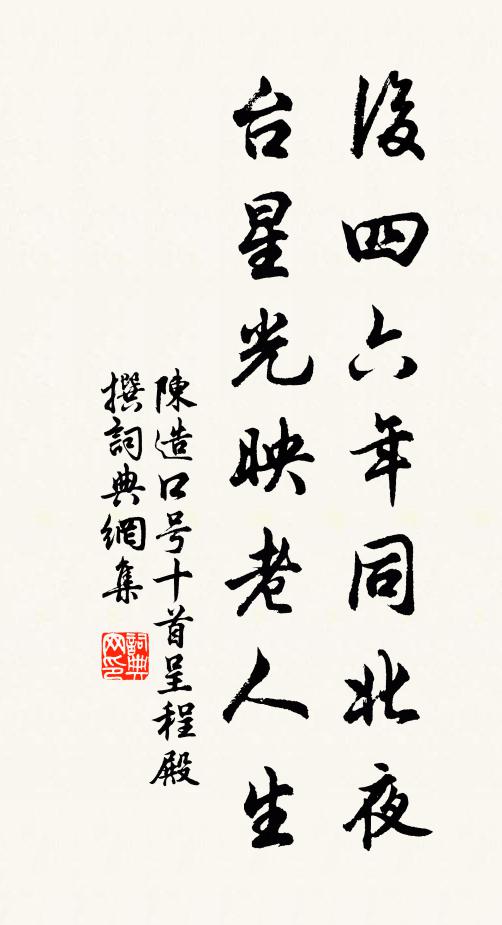 後四六年同此夜
台星光映老人生
陳造口号十首呈程殿
撰詞典網集
詞典網印